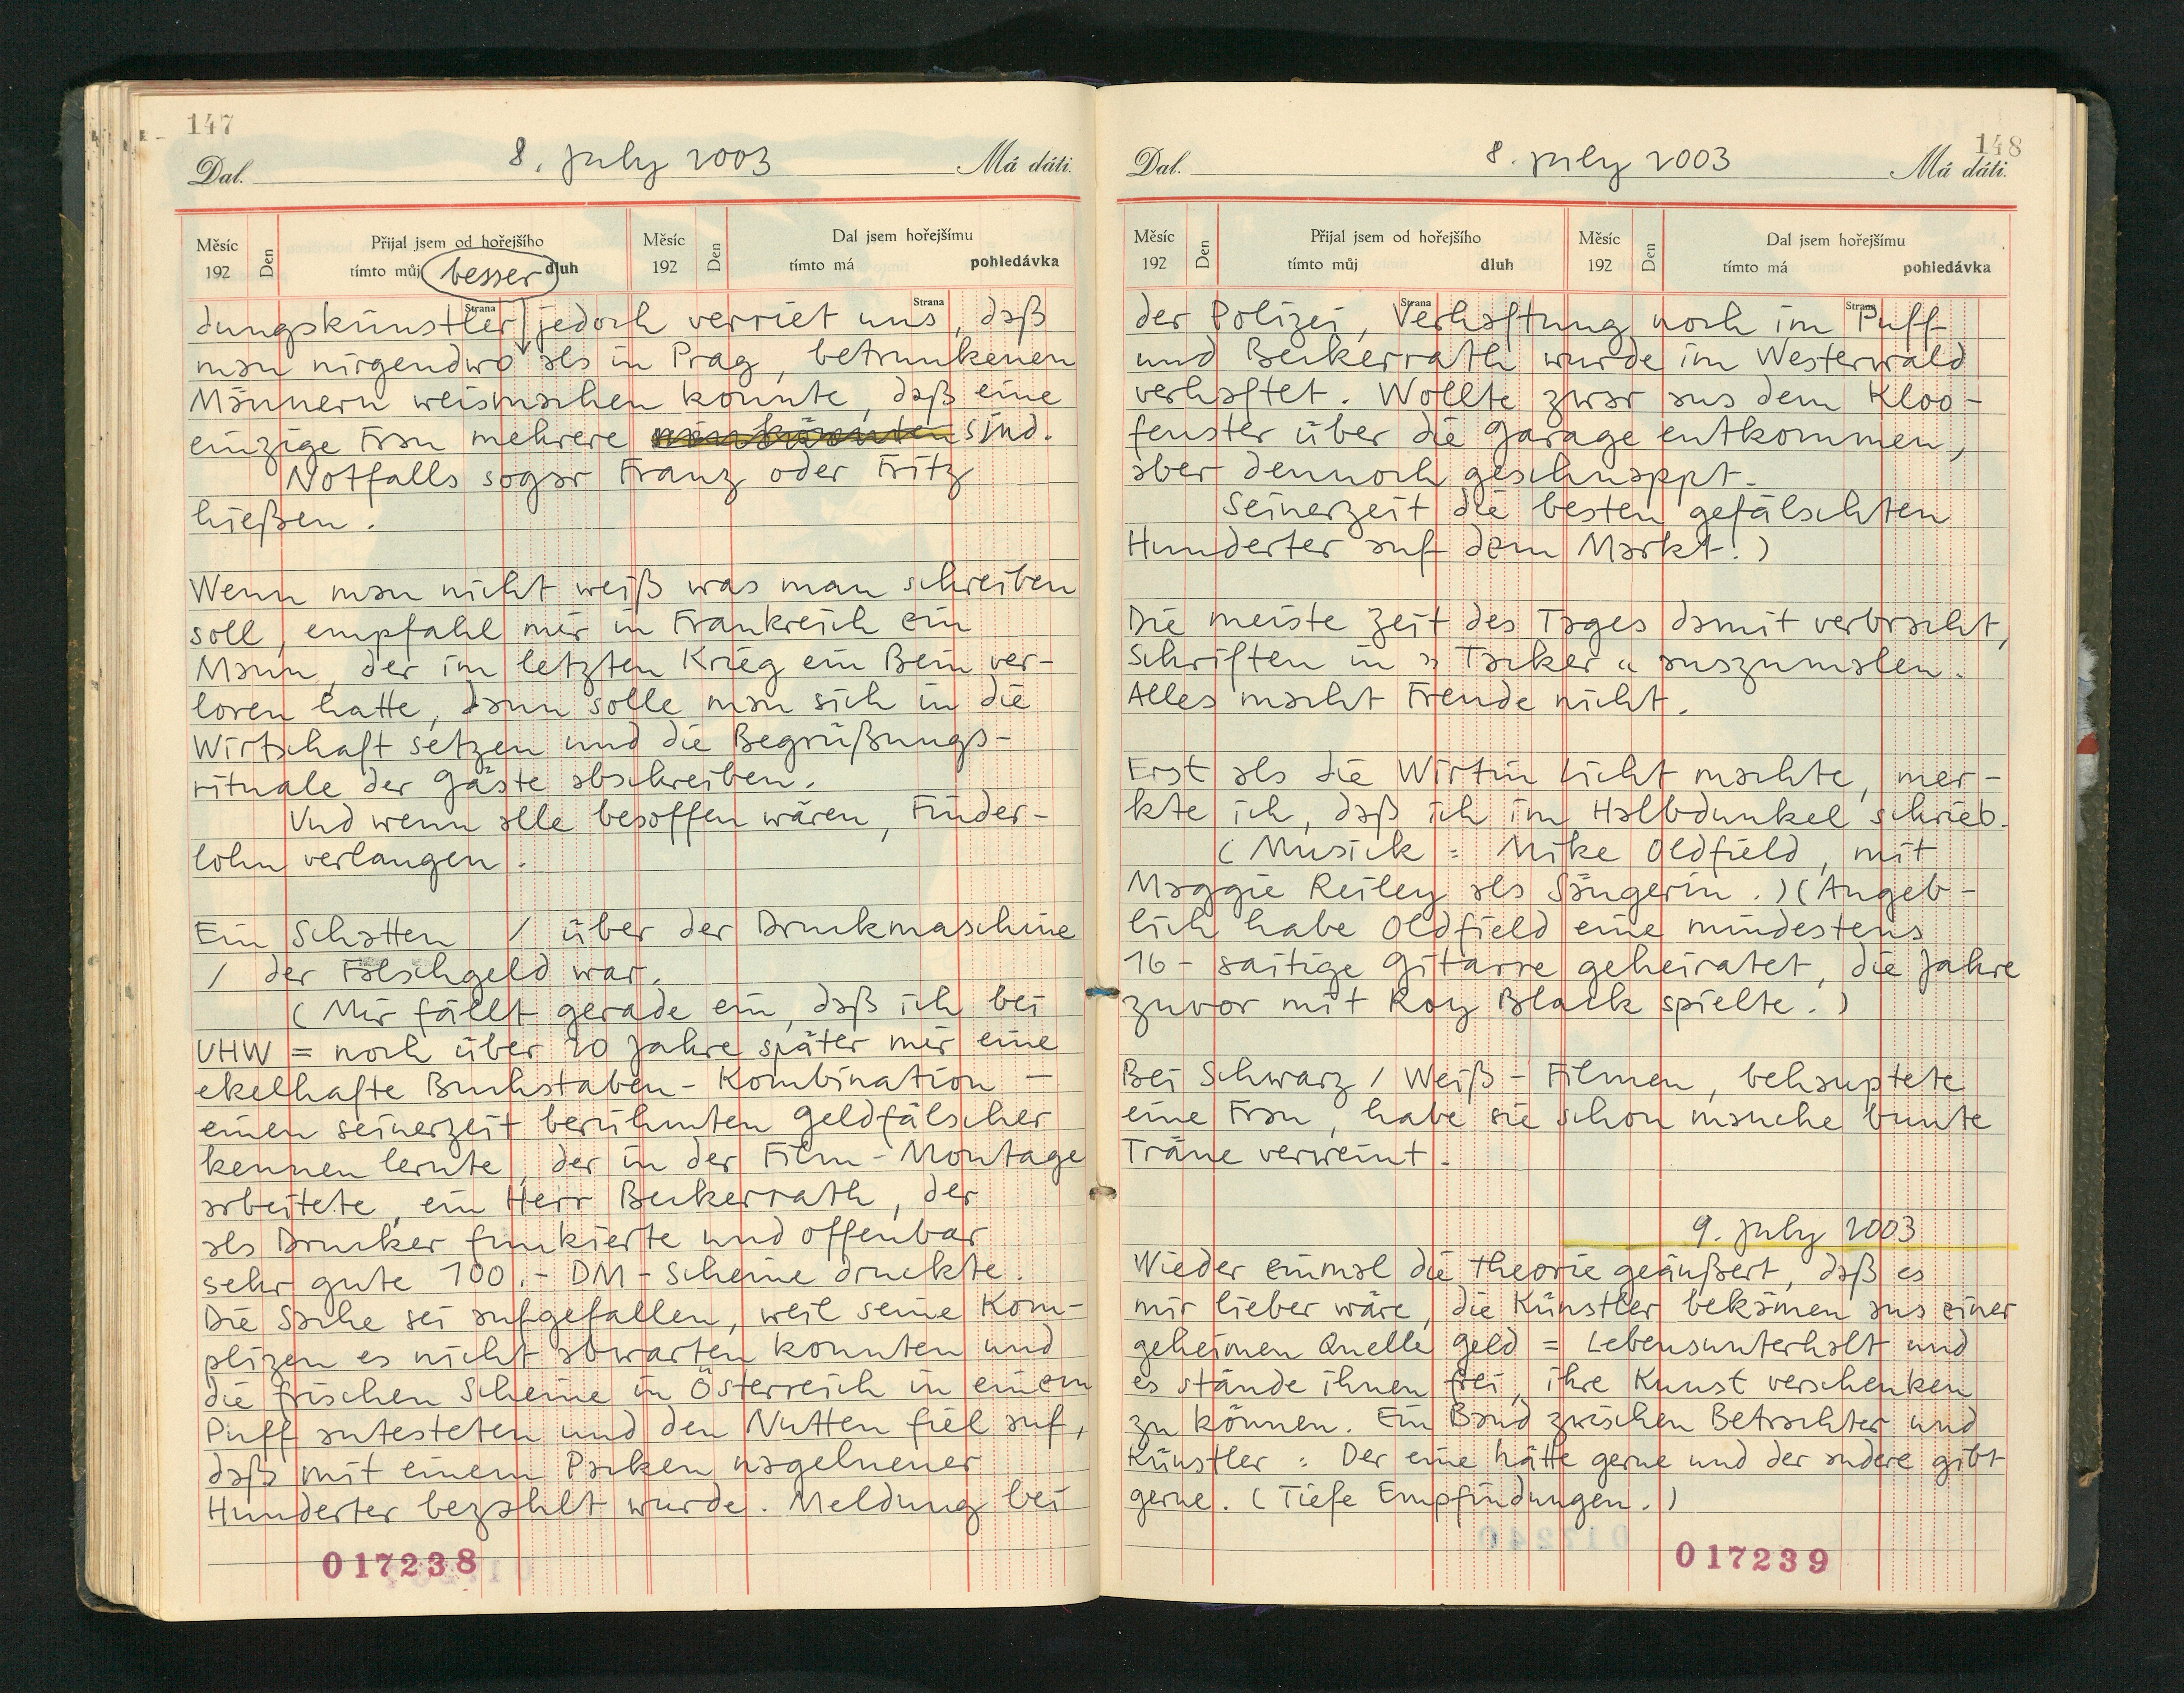 147
Dal. 8. july 2003 Má dáti.
Měsíc 192 Den Přijal jsem od hořejšího tímto můj dluh Strana Měsíc 192 Den Dal jsem hořejšímu tímto má pohledávka Strana
besser
dungskünstler jedoch verriet uns, daß
man nirgendwo als in Prag, betrunkenen
Männern weismachen konnte, daß eine
einzige Frau mehrere sind.
Notfalls sogar Franz oder Fritz
hießen.
Wenn man nicht weiß was man schreiben
soll, empfahl mir in Frankreich ein
Mann, der im letzten Krieg ein Bein ver-
loren hatte, dann solle man sich in die
Wirtschaft setzen und die Begrüßungs-
rituale der Gäste abschreiben.
Und wenn alle besoffen wären, Finder-
lohn verlangen.
Ein Schatten / über der Druckmaschine
/ der Falschgeld war.
(Mir fällt gerade ein, daß ich bei
UHW = noch über 20 Jahre später mir eine
ekelhafte Buchstaben-Kombination –
einen seinerzeit berühmten Geldfälscher
kennen lernte, der in der Film-Montage
arbeitete, ein Herr Beckerrath, der
als Drucker funkierte und offenbar
sehr gute 100.- DM-Scheine druckte.
Die Sache sei aufgefallen, weil seine Kom-
plizen es nicht abwarten konnten und
die frischen Scheine in Österreich in einem
Puff antesteten und den Nutten fiel auf,
daß mit einem Packen nagelneuer
Hunderter bezahlt wurde. Meldung bei
017238
148
Dal. 8. july 2003 Má dáti.
Měsíc 192 Den Přijal jsem od hořejšího tímto můj dluh Strana Měsíc 192 Den Dal jsem hořejšímu tímto má pohledávka Strana
der Polizei, Verhaftung noch im Puff
und Beckerrath wurde im Westerwald
verhaftet. Wollte zwar aus dem Kloo-
fenster über die Garage entkommen,
aber dennoch geschnappt.
Seinerzeit die besten gefälschten
Hunderter auf dem Markt.)
Die meiste Zeit des Tages damit verbracht,
Schriften in "Tacker" auszumalen.
Alles macht Freude nicht.
Erst als die Wirtin Licht machte, mer-
kte ich, daß ich im Halbdunkel schrieb.
(Musick = Mike Oldfield, mit
Maggie Reiley als Sängerin.) (Angeb-
lich habe Oldfield eine mindestens
16-saitige Gitarre geheiratet, die Jahre
zuvor mit Roy Black spielte.)
Bei Schwarz/Weiß-Filmen, behauptete
eine Frau, habe sie schon manche bunte
Träne verweint.
9. july 2003
Wieder einmal die Theorie geäußert, daß es
mir lieber wäre, die Künstler bekämen aus einer
geheimen Quelle Geld = Lebensunterhalt und
es stände ihnen frei, ihre Kunst verschenken
zu können. Ein Band zwischen Betrachter und
Künstler: Der eine hätte gerne und der andere gibt
gerne. (Tiefe Empfindungen.)
017239